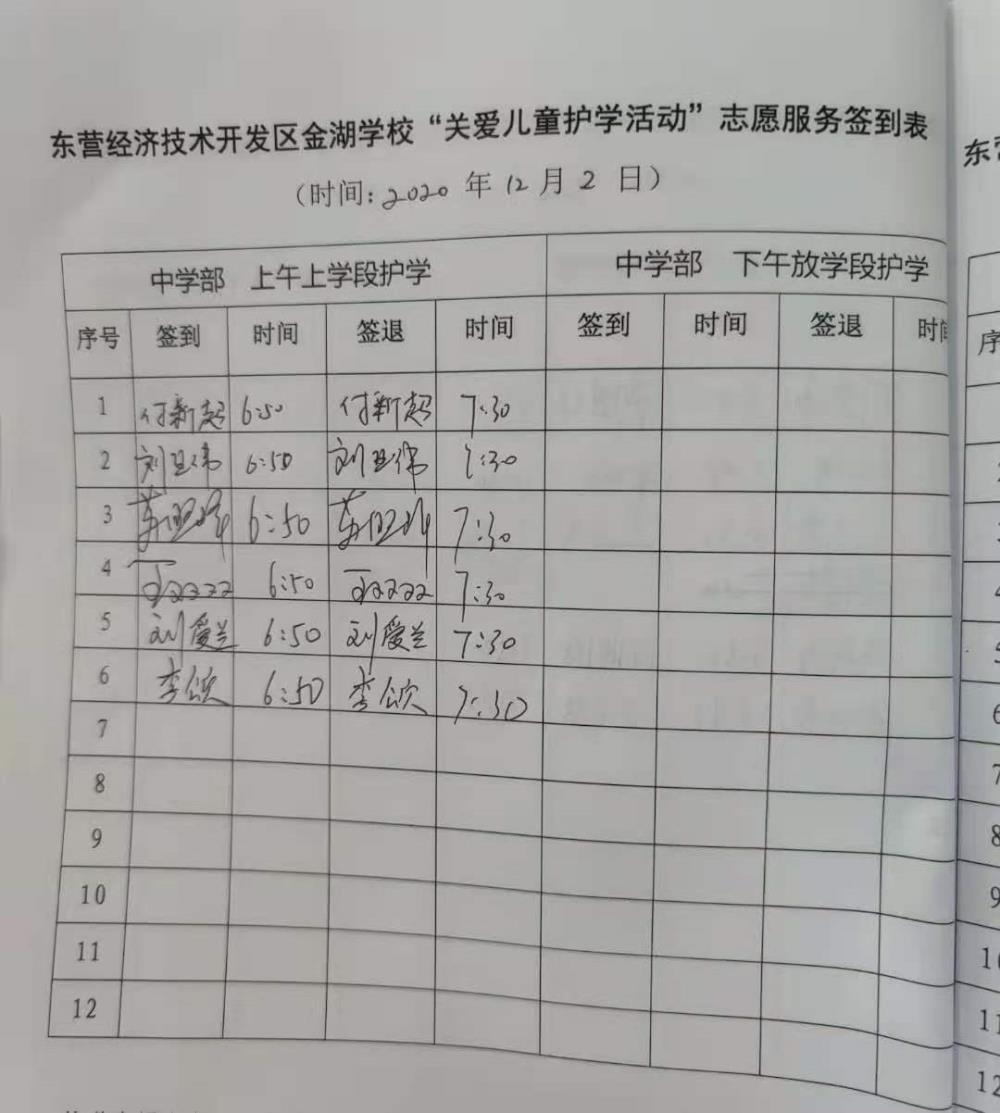 东营经济技术开发区金湖学校“关爱儿童护学活动”志愿服务签到表
（时间：2020 年 12 月 2 日）
中学部 上午上学段护学 中学部 下午放学段护学
序号 签到 时间 签退 时间 签到 时间 签退 时间
1 付新超 6:50 付新超 7:30
2 刘卫伟 6:50 刘卫伟 7:30
3 6:50 7:30
4 6:50 7:30
5 刘爱兰 6:50 刘爱兰 7:30
6 李欣 6:50 李欣 7:30
7
8
9
10
11
12
东
序
6
7
8
9
11
12